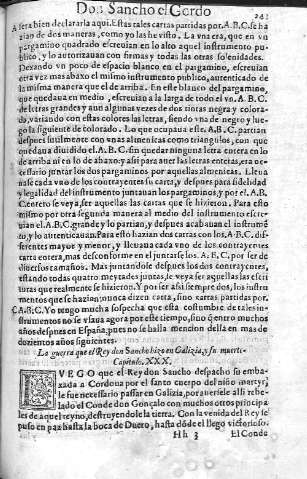 Don Sancho el Gordo
241
A sera bien declararla aqui. Estas tales cartas partidas por .A.B.C. se ha
zian de dos maneras, como yo las he visto. La vna era, que en vn
pargamino quadrado escreuian en lo alto aquel instrumento pu
blico, y lo autorizauan con firmas y todas las otras solenidades.
Dexando vn poco de espacio blanco en el pargamino, escreuian
otra vez mas abaxo el mismo instrumento publico, autenticado de
la misma manera que el de arriba. En este blanco del pargamino,
que quedaua en medio, escreuian a la larga de todo el vn .A.B.C.
de letras grandes y aun algunas vezes de dos tintas negra y colora-
da, variando con estas colores las letras, siendo vna de negro y lue-
go la siguiente de colorado. Lo que ocupaua este .A.B.C. partian
despues sutilmente con vnas almenicas como triangulos, con que
quedaua diuidido el .A.B.C. sin quedar ninguna letra entera en lo
de arriba ni en lo de abaxo: y assi para auer las letras enteras, era ne-
cessario juntar los dos pargaminos por aquellas almenicas. Lleua
uase cada vno de los contrayentes su carta, y despues para fidelidad
y legalidad del instrumento juntauan los pargaminos, y por el .A.B.
C. entero se veya, ser aquellas las cartas que se hizieron. Para esto
mismo por otra segunda manera al medio del instrumento escre-
uian el .A.B.C. grande y lo partian, y despues acabauan el instrumē
to, y lo autenticauan. Para esto hazian dos cartas con los .A.B.C. dif-
ferentes mayor y menor, y lleuaua cada vno de los contrayentes
carta entera, mas desconforme en el juntarse los .A.B.C. por ser de
diuersos tamaños. Mas juntandose despues los dos contrayentes,
estando todas quatro meytades juntas, se veya ser aquellas las escri
turas que realmente se hizieron. Y por ser assi siempre dos, los instru
mentos que se hazian, nunca dizen carta, sino cartas partidas por.
C A.B.C. Yo tengo mucha sospecha que esta costumbre de tales in-
strumentos no se vsaua agora por este tiempo, sino q̃ entro muchos
años despues en España, pues no se halla mencion della en mas de
dozientos años siguientes.
La guerra que el Rey don Sancho hizo en Galizia, y su muerte.
Capitulo, XXX.
LVEGO que el Rey don Sancho despacho su emba-
xada a Cordoua por el santo cuerpo del niño martyr,
le fue necessario passar en Galizia, por auersele alli rebe-
lado el Conde don Gonçalo con muchos otros principa
les de aquel reyno, destruyendole la tierra. Con la venida del Rey se
puso en paz hasta la boca de Duero, hasta dõde el llego victorioso.
Hh 3
El Conde